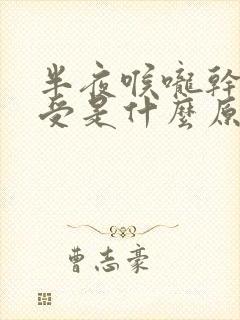 半夜喉嚨幹
受是什麼原
曹志豪